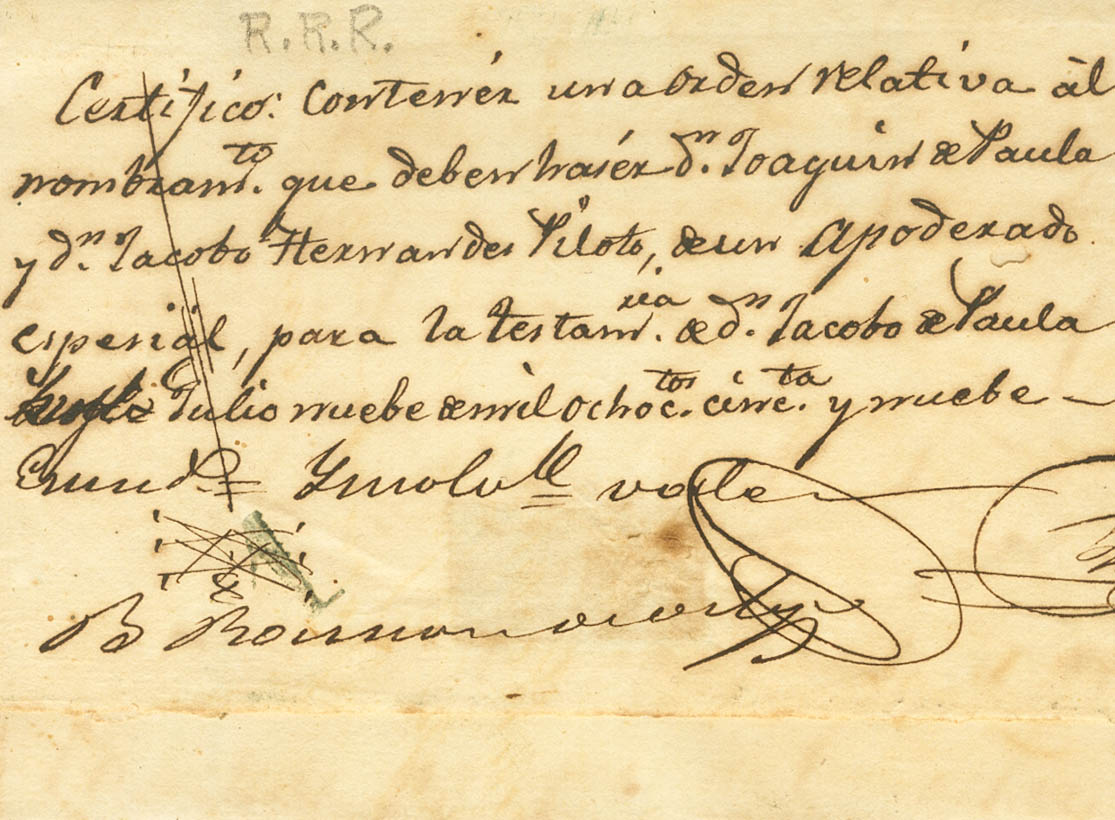 R.R.R.
Certifico: Contenér una orden relativa ál
nombram.to que deben hasér d.n Joaquin de Paula
y d.n Jacobo Hernandes Piloto, de un apoderado
espesiál, para la testam.ria de d.n Jacobo de Paula
Julio nuebe de mil Ochoc.tos cinc.ta y nuebe
Enmd.o = = vale